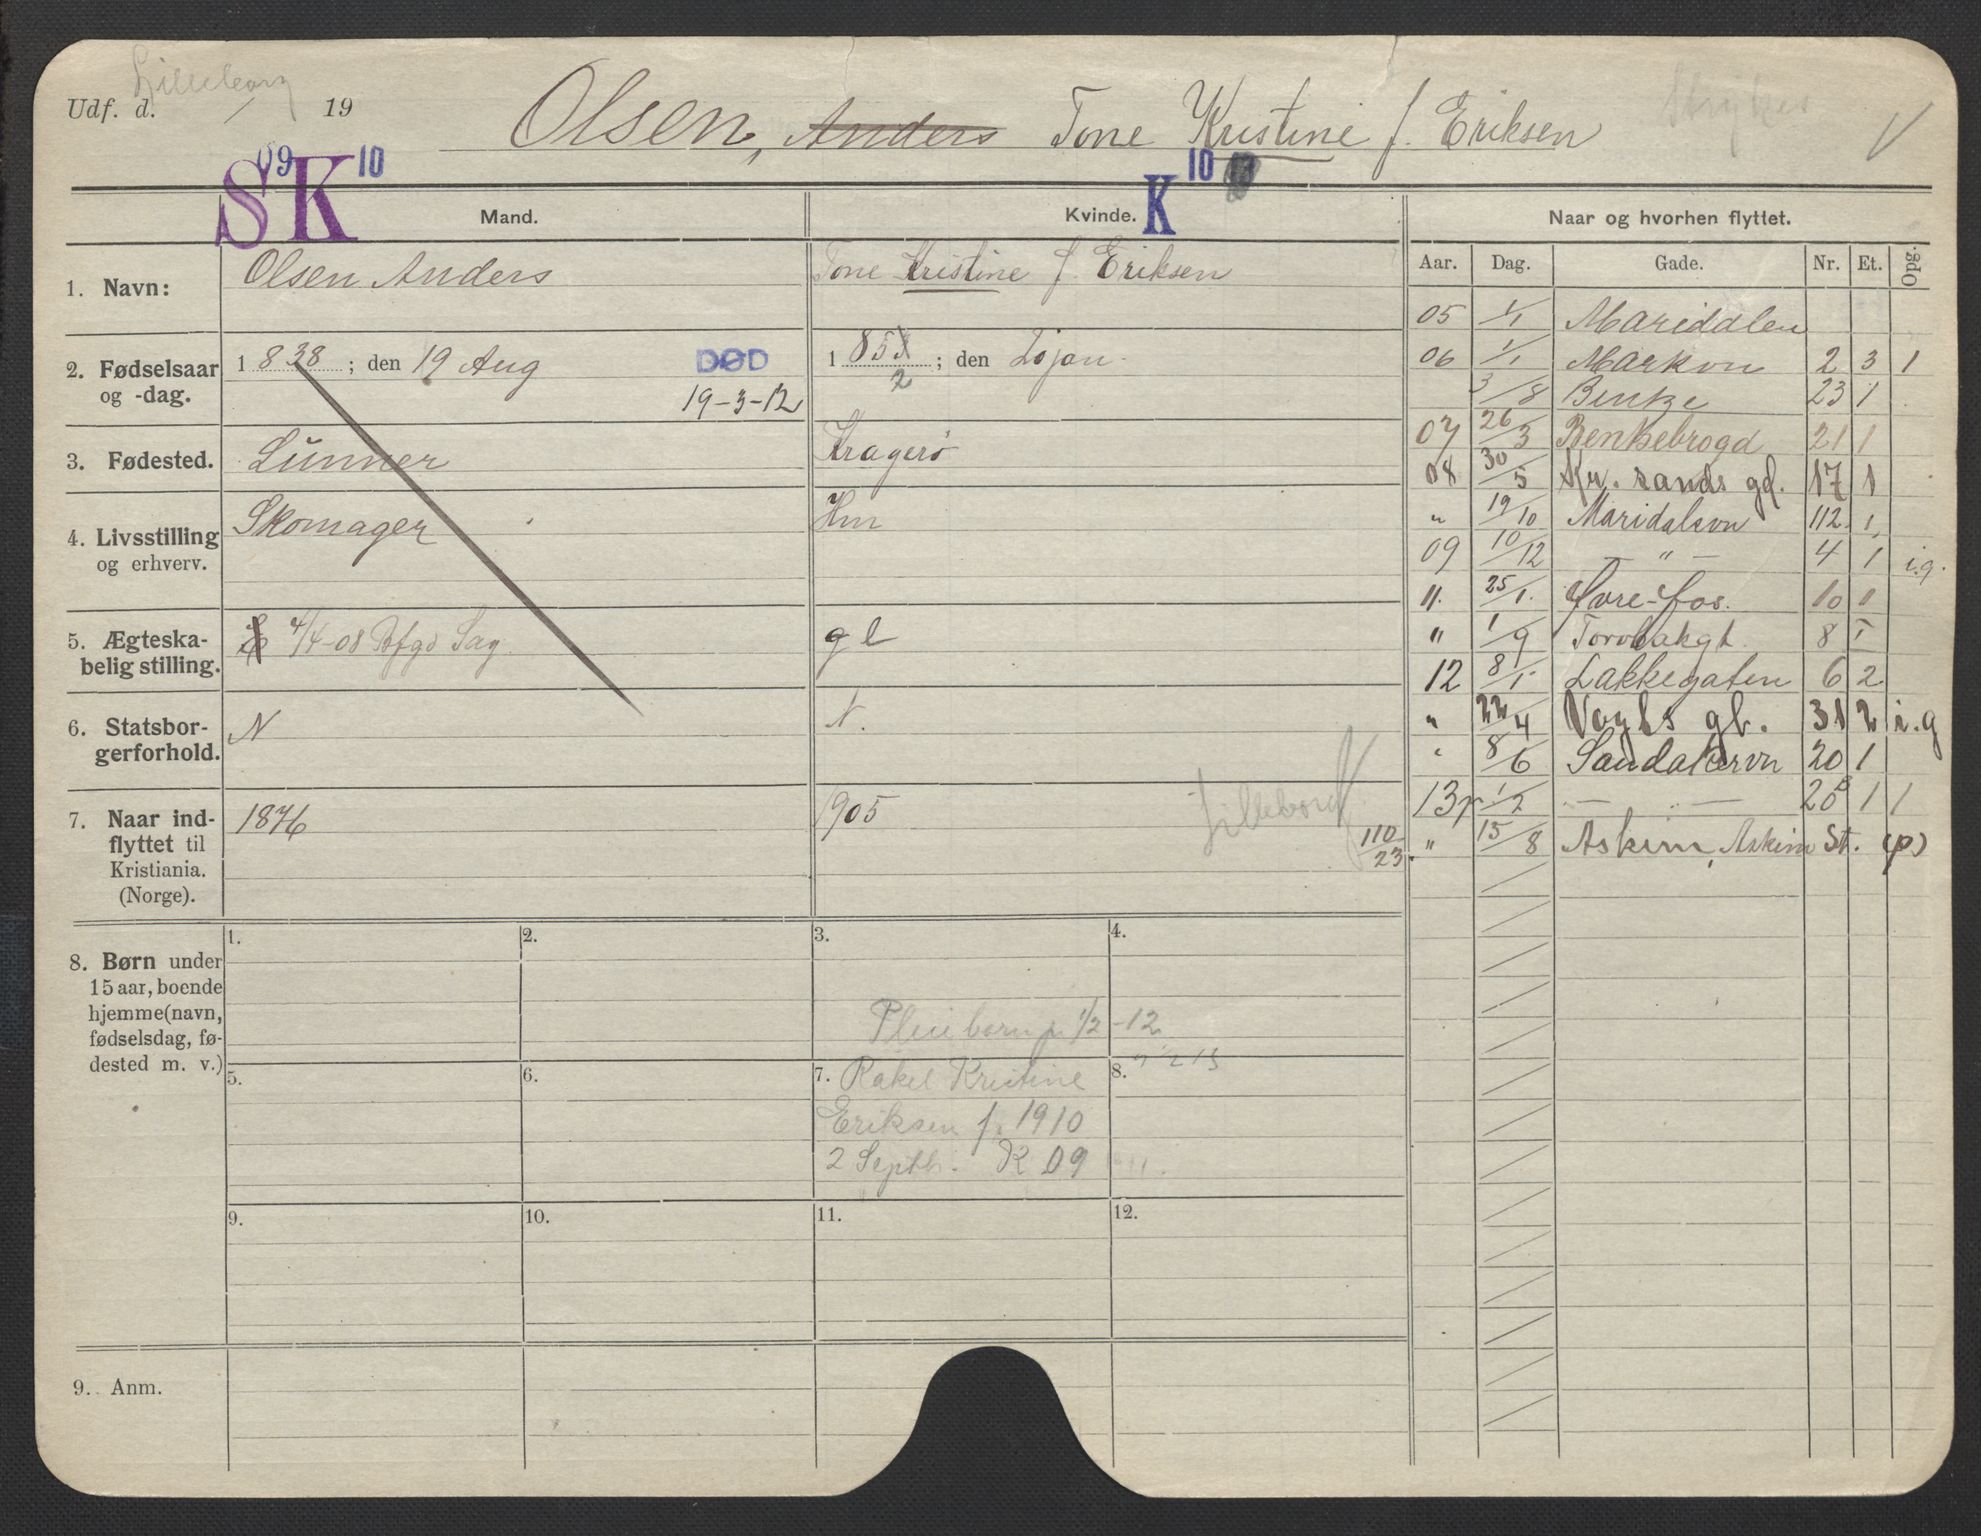 Lilleborg
Udf. d. / 19
Olsen, Anders Tone Kristine f. Eriksen
S 09 K 10
K 10
Mand.
Kvinde.
Naar og hvorhen flyttet.
Aar. Dag. Gade. Nr. Et. Opg.
1. Navn:
Olsen Anders
Tone Kristine f. Eriksen
2. Fødselsaar
og -dag.
1 838 ; den 19 Aug
DØD
19-3-12
1 85 2 ; den jan.
3. Fødested.
Lunner
Kragerø
4. Livsstilling
og erhverv.
Skomager
Hm
5. Ægteska-
belig stilling.
4/4-08 Bfgd Sag
g l
6. Statsbor-
gerforhold.
N
N.
7. Naar ind-
flyttet til
Kristiania.
(Norge).
1876
1905
Lilleborg
110
23
05 1/1 Mariddalen
06 1/1 Markvn 2 3 1
3/8 Bentze 23 1
07 26/3 Bentsebrogd 21 1
08 30/5 Kr. sands gd. 17 1
" 19/10 Maridalsvn 112 1
09 10/12 — " — 4 1 i.g.
11. 25/1. Øvre-fos. 10 1
" 1/9 Torvbakgt. 8 I
12 8/1 Lakkegaten 6 2
" 22/4 Vogts gt. 31 2 i.g
" 8/6 Sandakervn 20 1
13 1/2 — " — 20B 1 1
" 15/8 Askim, Askim St. (p)
8. Børn under
15 aar, boende
hjemme (navn,
fødselsdag, fø-
dested m. v.)
1. 2. 3. 4.
Pleiebarn p. 1/2-12
5. 6. 7. 8.
Rakel Kristine
Eriksen f. 1910
2 Septb. K 09
9. 10. 11. 12.
9. Anm.